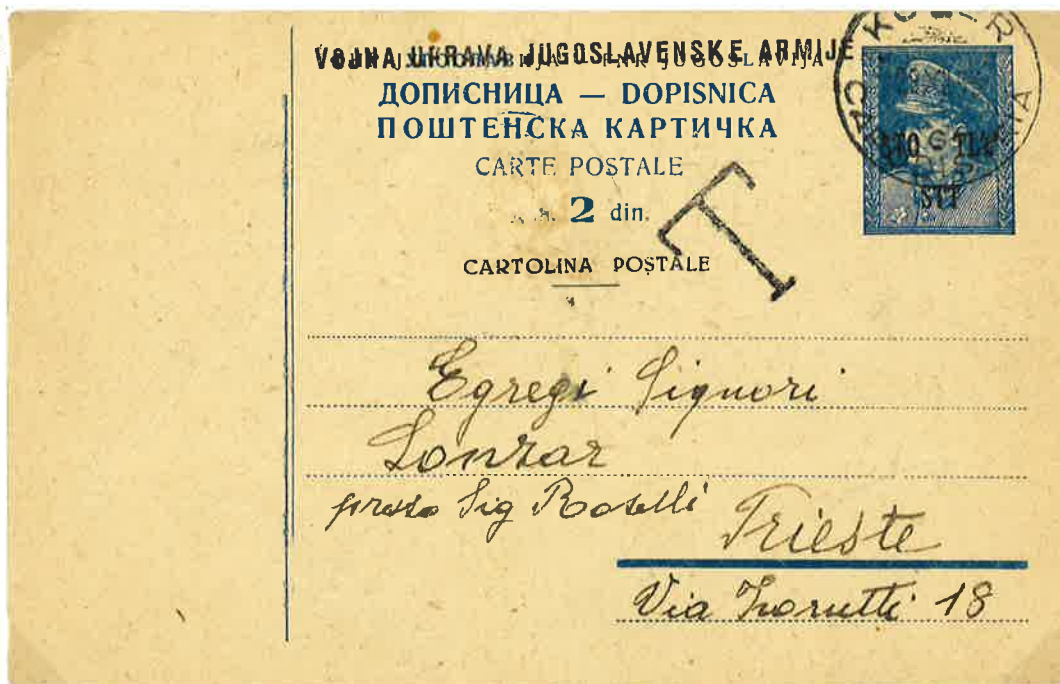 VOJNA UPRAVA JUGOSLAVENSKE ARMIJE
ДОПИСНИЦА — DOPISNICA
ПОШТЕНСКА КАРТИЧКА
CARTE POSTALE
2 din.
CARTOLINA POSTALE
T
KOPER
CAPODISTRIA
STT
Egregi Signori
Lonzar
presso Sig Roselli
Trieste
Via Zorutti 18